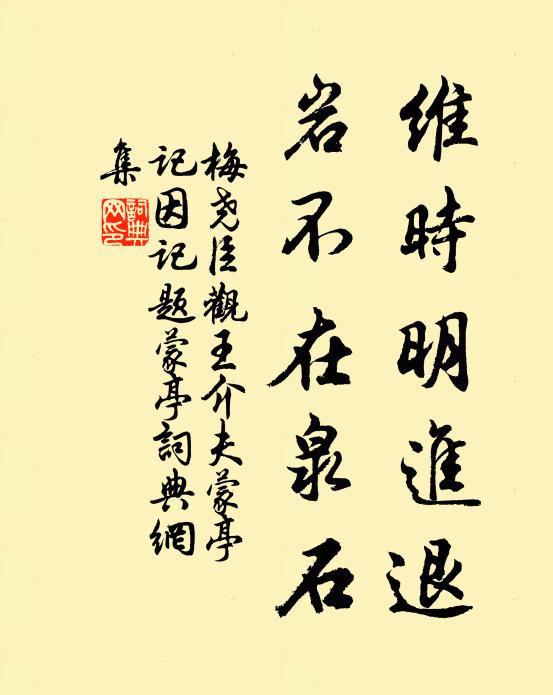 維時明進退
岩不在泉石
梅堯臣觀王介夫蒙亭
記因記題蒙亭詞典網
集
詞典
网印